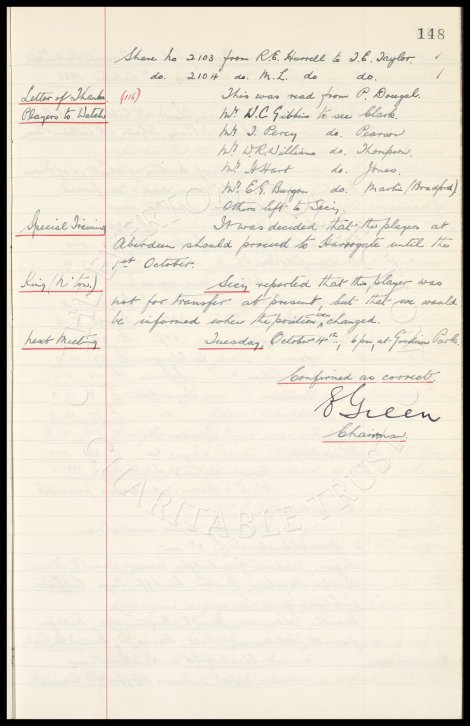 148
Share No 2103 from R.E. Hurrell to T.E. Taylor. 1
do. 2104 do. M.L. do do. 1
Letter of Thanks (116) This was read from P. Dougal.
Players to Watch Mr. W.C. Gibbins to see Clark.
Mr. T. Percy do. Pearson
Mr. W.R. Williams do. Thompson.
Mr. A. Hart do. Jones.
Mr. E.G. Burgon do. Martin (Bradford).
Others left to Secy.
Special Training It was decided that the players at
Aberdeen should proceed to Harrogate until the
1st October.
King (N'ton.) Secy reported that this player was
not for transfer at present, but that we would
be informed when the position been changed.
Next Meeting Tuesday, October 4th, 6pm, at Goodison Park.
Confirmed as correct.
E Green
Chairman.
CHARITABLE TRUST